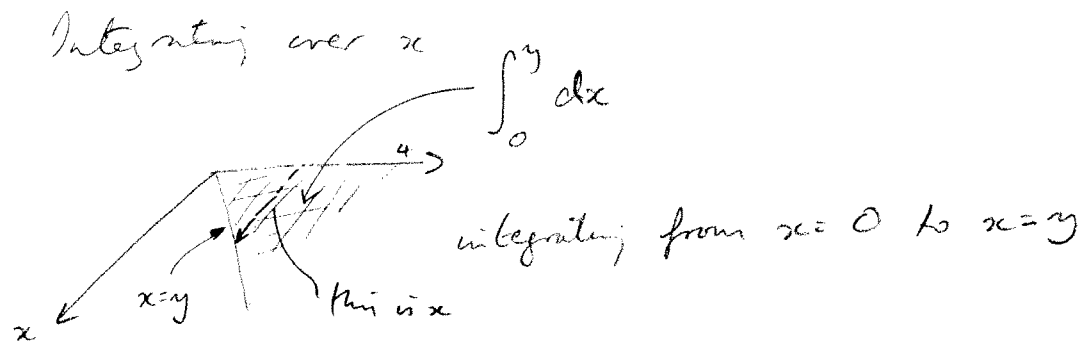 Integrating over x
∫₀ʸ dx
y
integrating from x = 0 to x = y
x = y
this is x
x